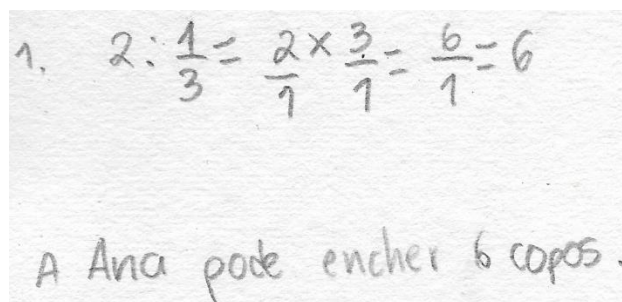 1. 2 : 1/3 = 2/1 × 3/1 = 6/1 = 6
A Ana pode encher 6 copos.